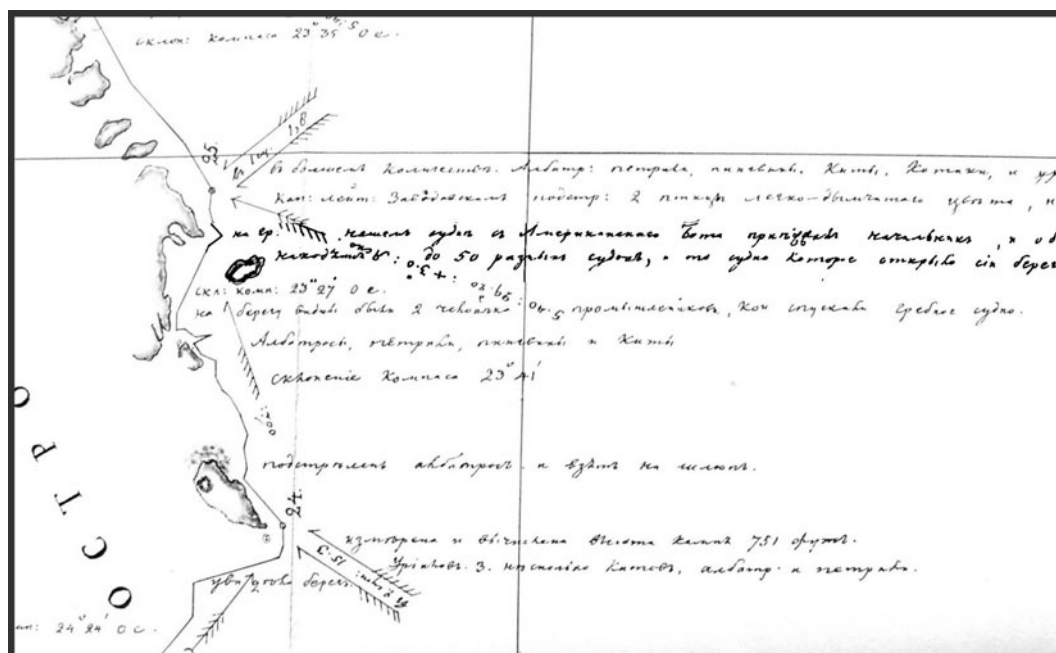 склон: компаса 23° 35' O е.
25.
1,8
въ большемъ количествѣ. Албатр: петрели, пингвины, Киты, Котики, и ур
Кап: лейт: Завадовскимъ подстр: 2 птицы легко-дымчатаго цвѣта, н
на ер. нашемъ судне съ Американскаго бота начальникъ, и об
находилось до 50 разныхъ судовъ, и то судно которое открыло сіи берег
скл: комп: 23° 27' O е.
на берегу видны были 2 человѣка промышлениковъ, кои спускали гребное судно.
Албатросы, петрели, пингвины и Киты
склоненіе Компаса 23° 41'
подстрѣленъ албатросъ и взятъ на шлюпъ.
24.
измѣрена и вычислена высота камня 751 футъ.
Уріловъ 3. нѣсколько Китовъ, албатр. и петрели.
15.3
берегъ
ОСТРО
мп: 24° 24' O е.